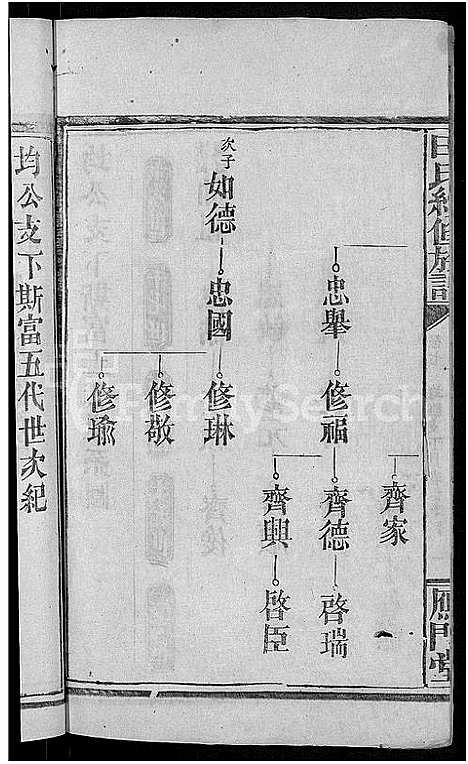 田氏續修族譜
雁門堂
齊家
忠舉 修福 齊德 啓瑞
齊興 啓臣
次子 如德 忠國 修琳
修敬
修瑜
均公支下斯富五代世次紀
FamilySearch